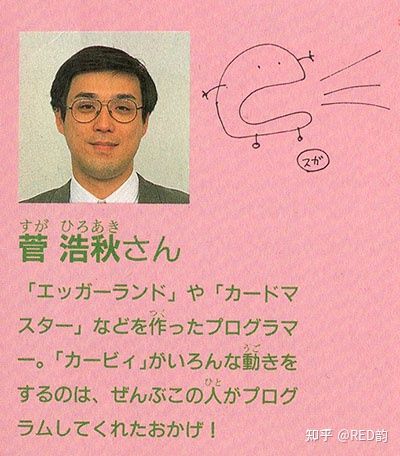 スガ
すが ひろあき
菅 浩秋さん
「エッガーランド」や「カードマ
スター」などを作ったプログラマ
ー。「カービィ」がいろんな動きを
するのは、ぜんぶこの人がプログ
ラムしてくれたおかげ!
つく
うご
ひと
知乎 @RED韵